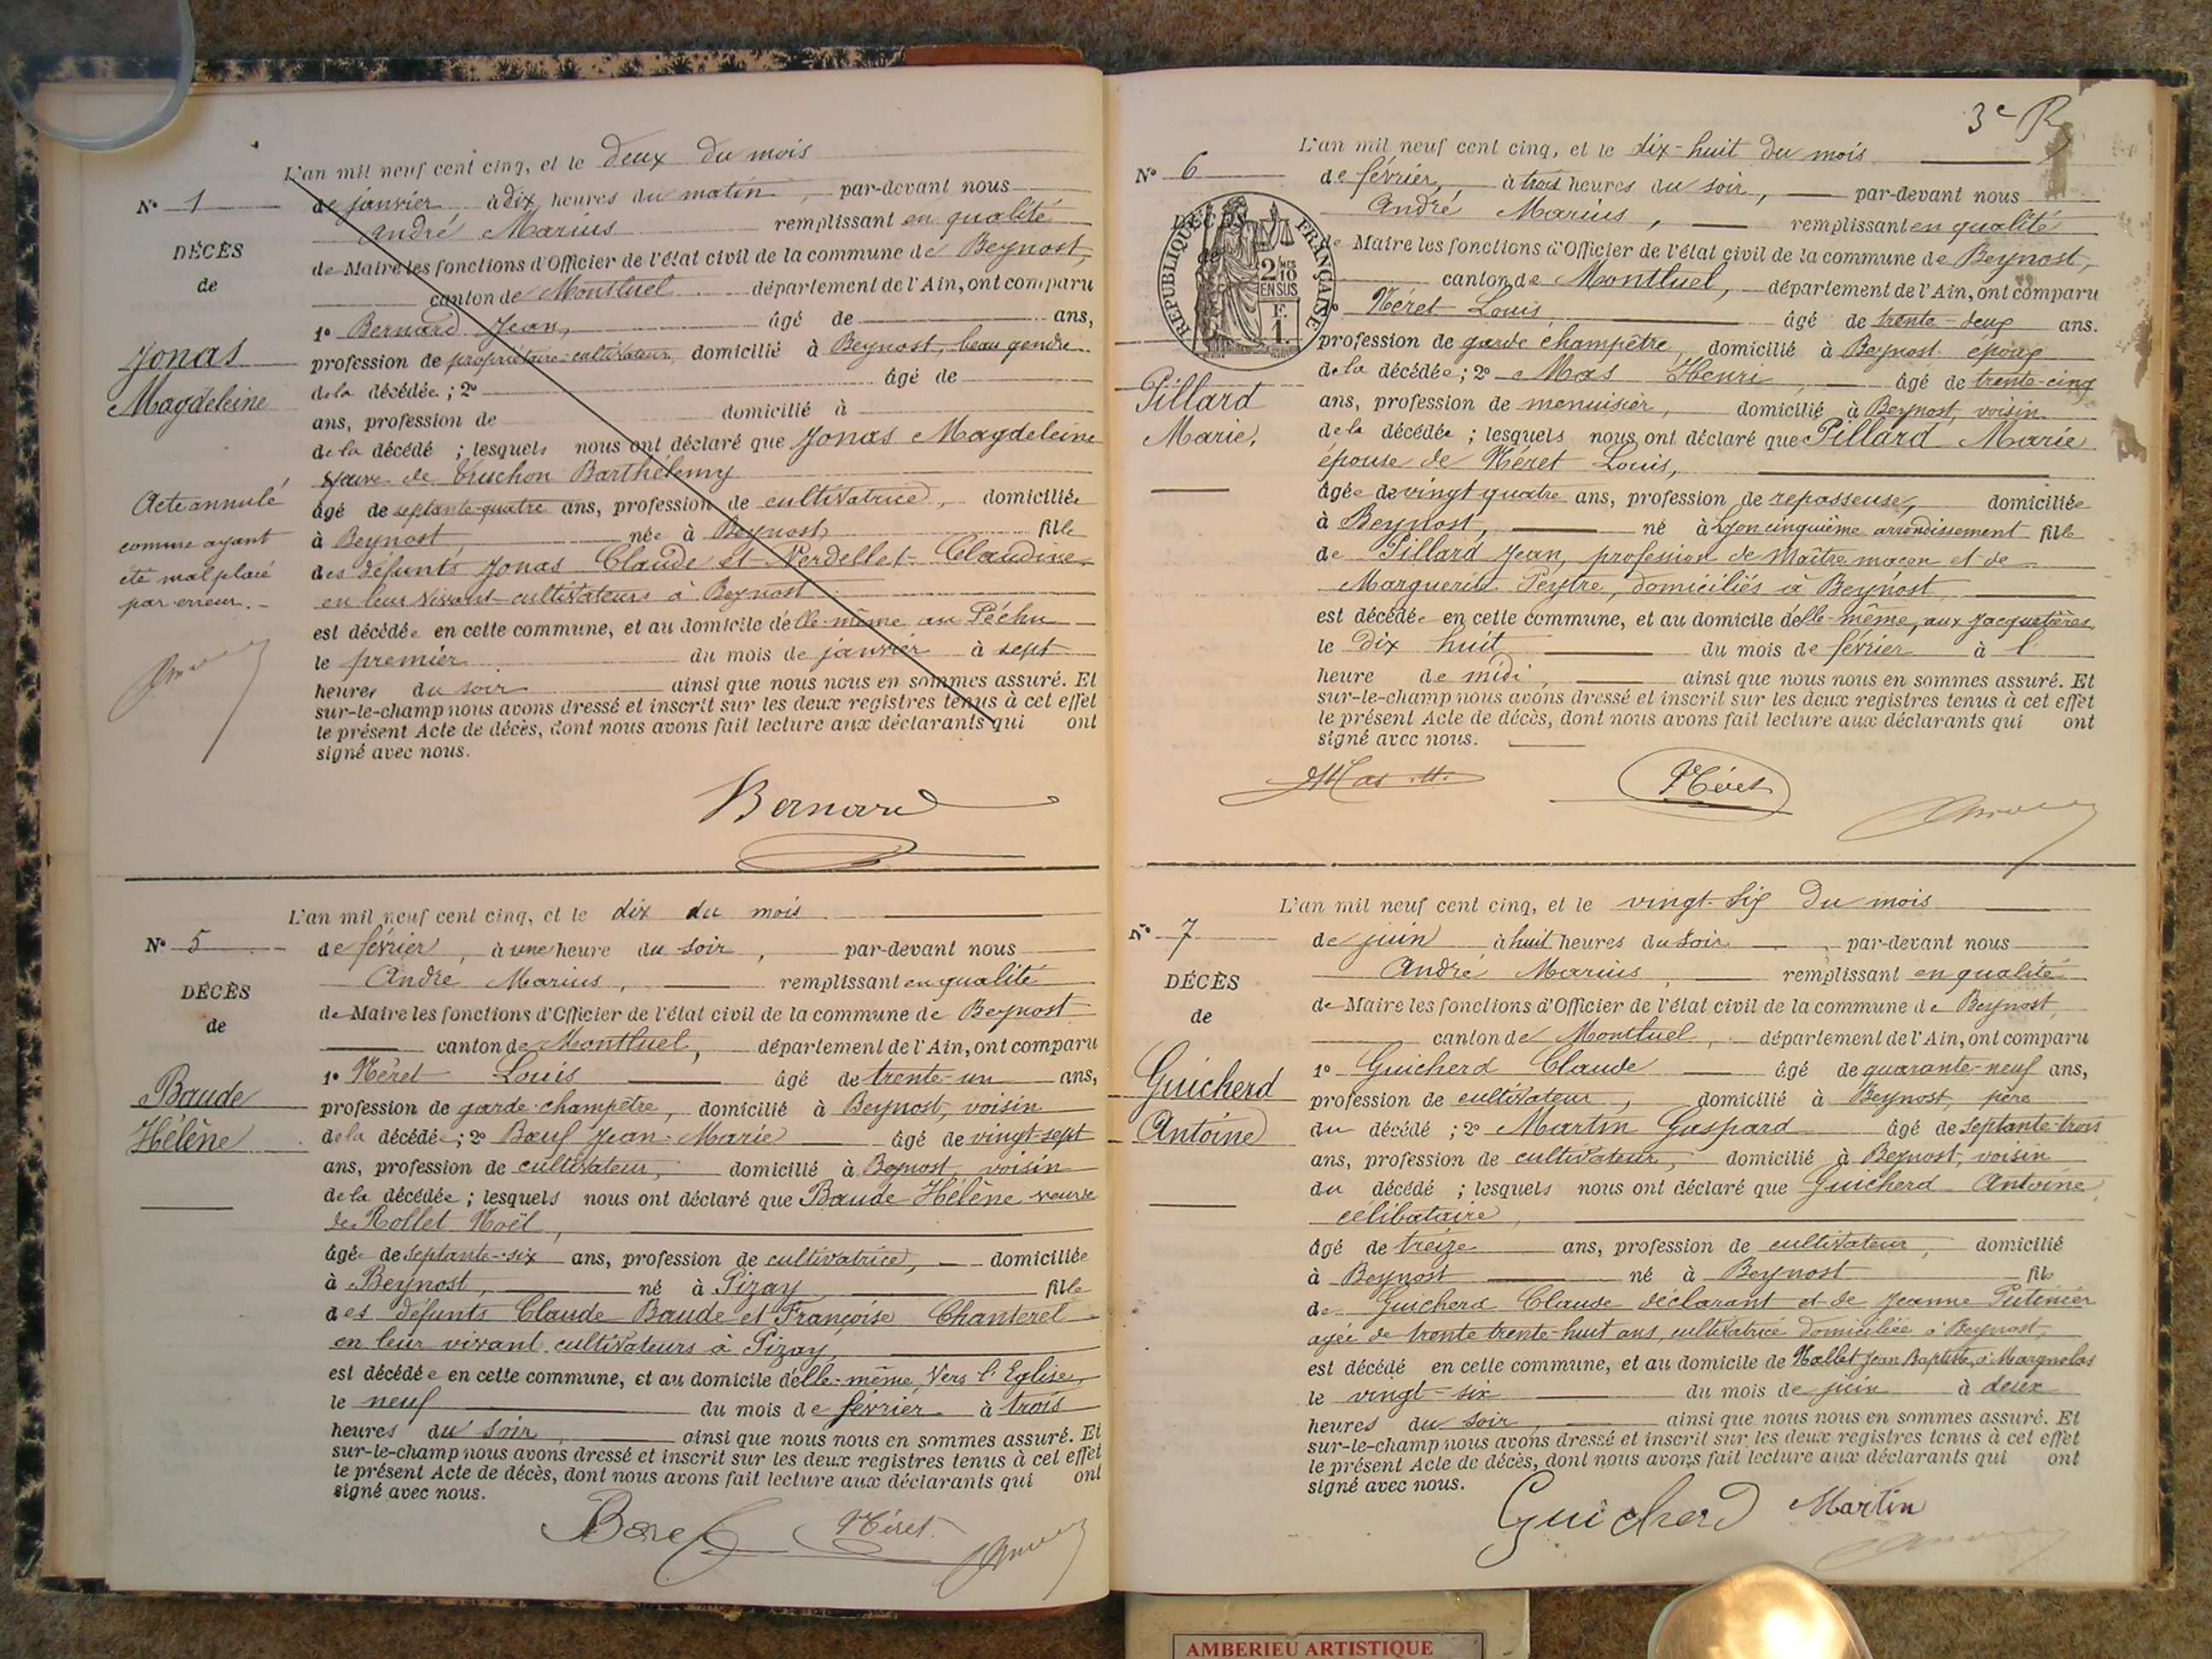 L'an mil neuf cent cinq, et le deux du mois
N° 1
de janvier à dix heures du matin, par-devant nous
André Marius remplissant en qualité
DÉCÈS
de Maire les fonctions d'Officier de l'état civil de la commune de Beynost,
de
canton de Montluel département de l'Ain, ont comparu
1° Bernard Jean, âgé de ans,
Jonas
profession de propriétaire-cultivateur, domicilié à Beynost, beau gendre
Magdeleine
de la décédée ; 2° âgé de
ans, profession de domicilié à
de la décédé ; lesquels nous ont déclaré que Jonas Magdeleine
veuve de Truchon Barthélemy
Acte annulé
âgé de septante-quatre ans, profession de cultivatrice, domiciliée
comme ayant
à Beynost, née à Beynost, fille
été mal placé
des défunts Jonas Claude et Verdellet Claudine
par erreur. -
en leur vivant cultivateurs à Beynost
est décédée en cette commune, et au domicile d'elle-même au Péchu
le premier du mois de janvier à sept
heures du soir ainsi que nous nous en sommes assuré. Et
sur-le-champ nous avons dressé et inscrit sur les deux registres tenus à cet effet
le présent Acte de décès, dont nous avons fait lecture aux déclarants qui ont
signé avec nous.
Bernard
L'an mil neuf cent cinq, et le dix du mois
N° 5
de février, à une heure du soir, par-devant nous
André Marius, remplissant en qualité
DÉCÈS
de Maire les fonctions d'Officier de l'état civil de la commune de Beynost
de
canton de Montluel, département de l'Ain, ont comparu
1° Néret Louis âgé de trente-un ans,
Baude
profession de garde-champêtre, domicilié à Beynost, voisin
Hélène
de la décédée ; 2° Bœuf Jean-Marie âgé de vingt-sept
ans, profession de cultivateur, domicilié à Beynost, voisin
de la décédée ; lesquels nous ont déclaré que Baude Hélène veuve
de Rollet Noël,
âgée de septante-six ans, profession de cultivatrice, domiciliée
à Beynost, né à Pizay, fille
des défunts Claude Baude et Françoise Chanterel
en leur vivant cultivateurs à Pizay,
est décédée en cette commune, et au domicile d'elle-même, Vers l'Eglise,
le neuf du mois de février à trois
heures du soir, ainsi que nous nous en sommes assuré. Et
sur-le-champ nous avons dressé et inscrit sur les deux registres tenus à cet effet
le présent Acte de décès, dont nous avons fait lecture aux déclarants qui ont
signé avec nous.
Bœuf Néret
3e R
L'an mil neuf cent cinq, et le dix-huit du mois
N° 6
de février, à trois heures du soir, par-devant nous
André Marius, remplissant en qualité
RÉPUBLIQUE FRANÇAISE
2/10MES EN SUS
F. 1.
de Maire les fonctions d'Officier de l'état civil de la commune de Beynost,
canton de Montluel, département de l'Ain, ont comparu
1° Néret Louis, âgé de trente-deux ans.
profession de garde champêtre, domicilié à Beynost époux
Pillard
de la décédée ; 2° Mas Henri, âgé de trente-cinq
ans, profession de menuisier, domicilié à Beynost, voisin
Marie,
de la décédée ; lesquels nous ont déclaré que Pillard Marie
épouse de Néret Louis,
âgée de vingt quatre ans, profession de repasseuse, domiciliée
à Beynost, né à Lyon cinquième arrondissement fille
de Pillard Jean, profession de Maître maçon et de
Marguerite Peytre, domiciliés à Beynost,
est décédée en cette commune, et au domicile d'elle-même, aux Jacquetières,
le dix huit du mois de février à l'
heure de midi, ainsi que nous nous en sommes assuré. Et
sur-le-champ nous avons dressé et inscrit sur les deux registres tenus à cet effet
le présent Acte de décès, dont nous avons fait lecture aux déclarants qui ont
signé avec nous.
Mas H. Néret
L'an mil neuf cent cinq, et le vingt-six du mois
N° 7
de juin à huit heures du soir, par-devant nous
André Marius, remplissant en qualité
DÉCÈS
de Maire les fonctions d'Officier de l'état civil de la commune de Beynost,
de
canton de Montluel, département de l'Ain, ont comparu
1° Guicherd Claude âgé de quarante-neuf ans,
Guicherd
profession de cultivateur, domicilié à Beynost, père
Antoine
du décédé ; 2° Martin Gaspard âgé de septante-trois
ans, profession de cultivateur, domicilié à Beynost, voisin
du décédé ; lesquels nous ont déclaré que Guicherd Antoine,
célibataire,
âgé de treize ans, profession de cultivateur, domicilié
à Beynost né à Beynost fils
de Guicherd Claude déclarant et de Jeanne Putinier
agée de trente trente-huit ans, cultivatrice domiciliée à Beynost,
est décédé en cette commune, et au domicile de Nallet Jean Baptiste, à Margnolas
le vingt-six du mois de juin à deux
heures du soir, ainsi que nous nous en sommes assuré. Et
sur-le-champ nous avons dressé et inscrit sur les deux registres tenus à cet effet
le présent Acte de décès, dont nous avons fait lecture aux déclarants qui ont
signé avec nous.
Guicherd Martin
AMBERIEU ARTISTIQUE